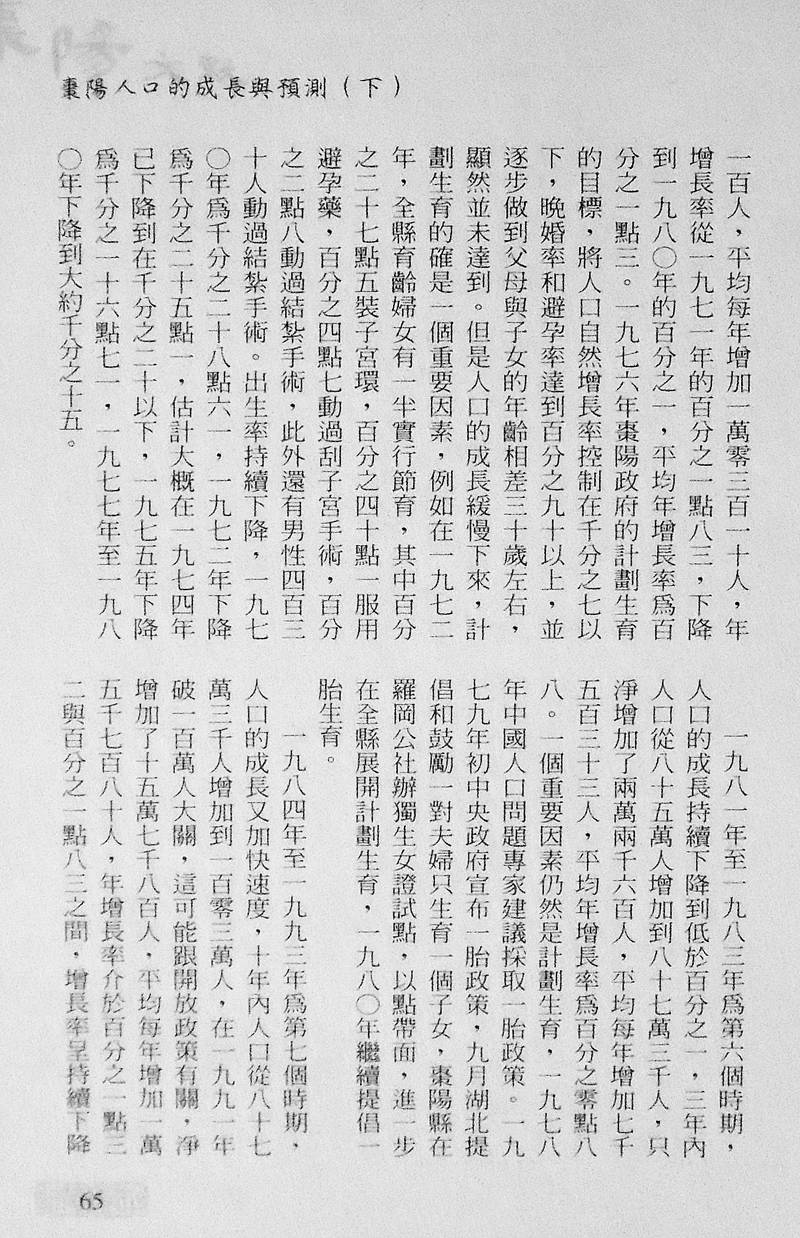 棗陽人口的成長與預測（下）
一百人，平均每年增加一萬零三百一十人，年
增長率從一九七一年的百分之一點八三，下降
到一九八〇年的百分之一，平均年增長率爲百
分之一點三。一九七六年棗陽政府的計劃生育
的目標，將人口自然增長率控制在千分之七以
下，晚婚率和避孕率達到百分之九十以上，並
逐步做到父母與子女的年齡相差三十歲左右，
顯然並未達到。但是人口的成長緩慢下來，計
劃生育的確是一個重要因素，例如在一九七二
年，全縣育齡婦女有一半實行節育，其中百分
之二十七點五裝子宮環，百分之四十點一服用
避孕藥，百分之四點七動過刮子宮手術，百分
之二點八動過結紮手術，此外還有男性四百三
十人動過結紮手術。出生率持續下降，一九七
〇年爲千分之二十八點六一，一九七二年下降
爲千分之二十五點一，估計大概在一九七四年
已下降到在千分之二十以下，一九七五年下降
爲千分之一十六點七一，一九七七年至一九八
〇年下降到大約千分之十五。
一九八一年至一九八三年爲第六個時期，
人口的成長持續下降到低於百分之一，三年內
人口從八十五萬人增加到八十七萬三千人，只
淨增加了兩萬兩千六百人，平均每年增加七千
五百三十三人，平均年增長率爲百分之零點八
八。一個重要因素仍然是計劃生育，一九七八
年中國人口問題專家建議採取一胎政策。一九
七九年初中央政府宣布一胎政策，九月湖北提
倡和鼓勵一對夫婦只生育一個子女，棗陽縣在
羅岡公社辦獨生女證試點，以點帶面，進一步
在全縣展開計劃生育，一九八〇年繼續提倡一
胎生育。
一九八四年至一九九三年爲第七個時期，
人口的成長又加快速度，十年內人口從八十七
萬三千人增加到一百零三萬人，在一九九一年
破一百萬人大關，這可能跟開放政策有關，淨
增加了十五萬七千八百人，平均每年增加一萬
五千七百八十人，年增長率介於百分之一點三
二與百分之一點八三之間，增長率呈持續下降
65